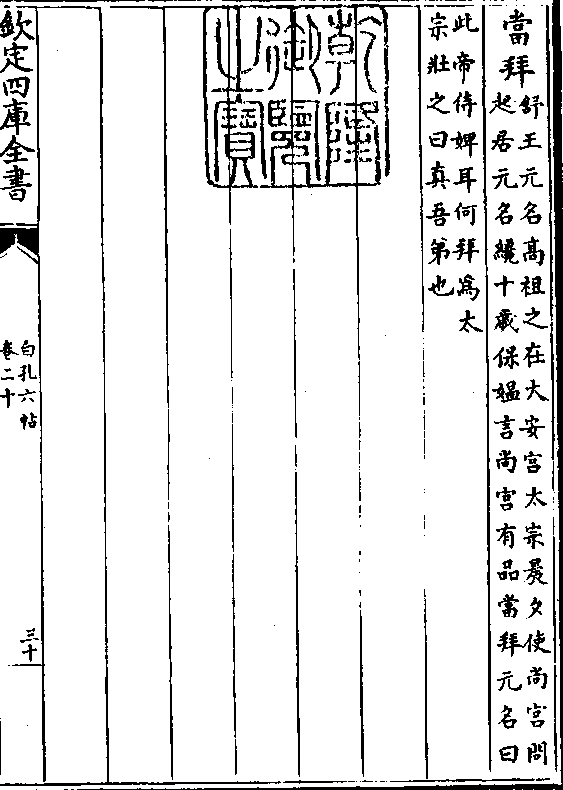 當拜
舒王元名高祖之在大安宮太宗晨夕使尚宮問
起居元名纔十歲保媪言尚宮有品當拜元名曰
此帝侍婢耳何拜爲太
宗壯之曰真吾弟也
乾隆
御覽
之寶
欽定四庫全書
白孔六帖
卷二十
三十